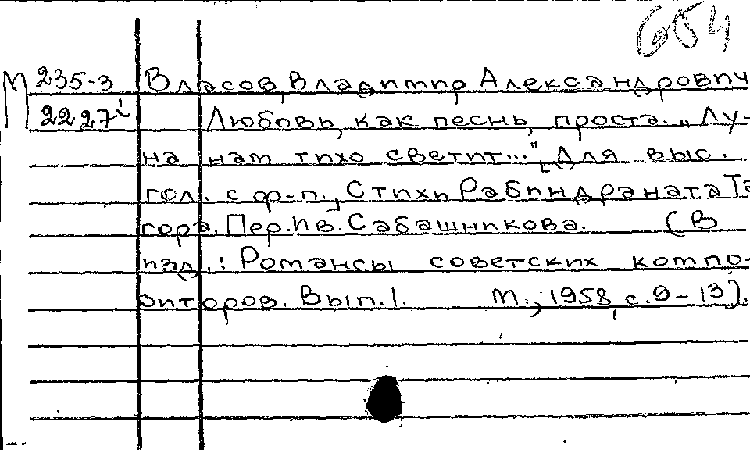 654
М 235-3 Власов, Владимир Александрович
2227 Любовь, как песнь, проста. „Лу-
на нам тихо светит...". [Для выс.
гол. с ф-п., Стихи Рабиндраната Та
гора. Пер. Ив. Сабашникова. (В
изд.: Романсы советских компо-
зиторов. Вып. 1. М., 1958, с. 9-13).